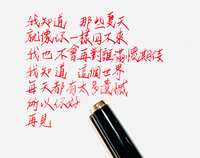 我知道 那些夏天
就像你一樣回不來
我也不會再對誰滿懷期待
我知道 這個世界
每天都有太多遺憾
所以你好
再見